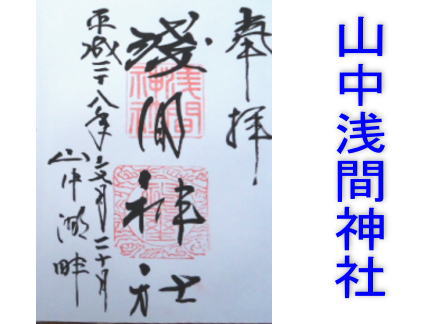 山中浅間神社
奉拝
淺間神社
浅間神社
平成二十八年
山中湖畔